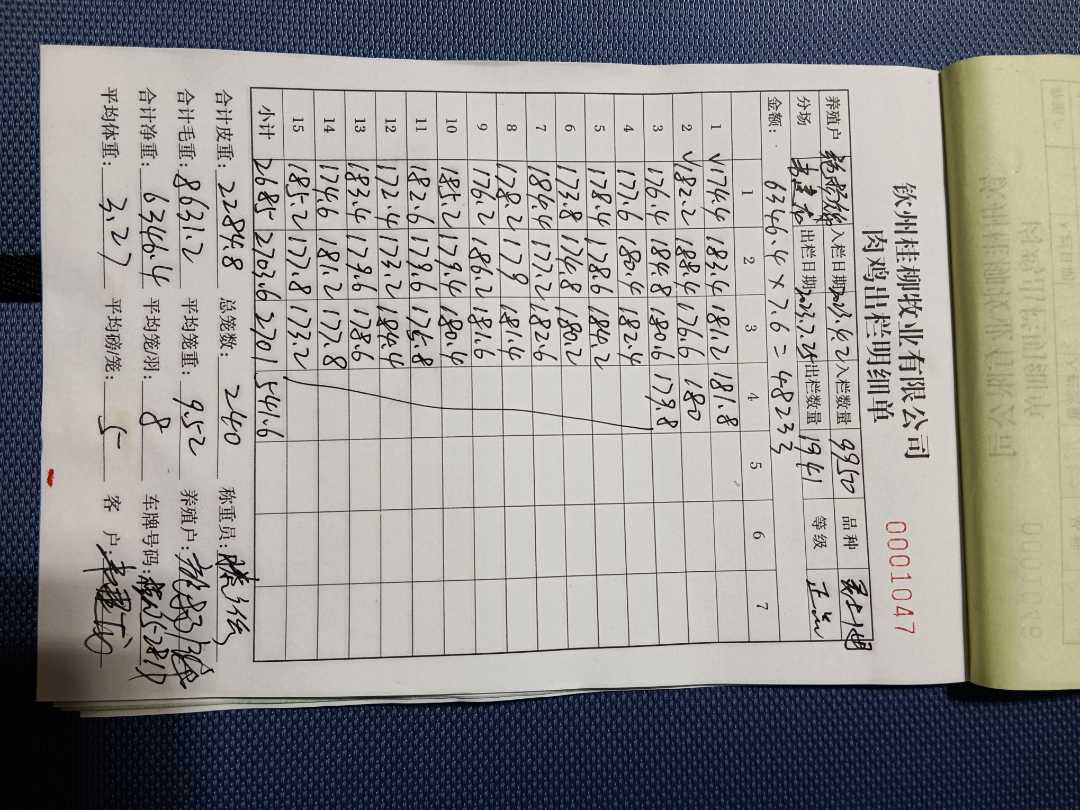 钦州桂柳牧业有限公司
肉鸡出栏明细单
0001047
养殖户 入栏日期 2023.4.2 入栏数量 9950 品种
分场 出栏日期 2023.7.25 出栏数量 1941 等级 正品
金额： 6346.4 × 7.6 = 48233
1 2 3 4 5 6 7
1 √174.4 183.4 181.2 181.8
2 √182.2 188.4 176.6 180
3 176.4 184.8 180.6 179.8
4 177.6 180.4 182.4
5 178.4 178.6 184.2
6 173.8 174.8 180.2
7 184.4 177.2 182.6
8 178.2 179 181.4
9 176.2 186.2 181.6
10 185.2 179.4 180.4
11 182.6 179.6 175.8
12 172.4 173.2 184.4
13 183.4 179.6 178.6
14 174.6 181.2 177.8
15 185.2 177.8 173.2
小计 2685 2703.6 2701 541.6
合计皮重：2284.8 总笼数：240 称重员：
合计毛重：8631.2 平均笼重：9.52 养殖户：
合计净重：6346.4 平均笼/羽：8 车牌号码：
平均体重：3.27 平均磅/笼：5 客 户：